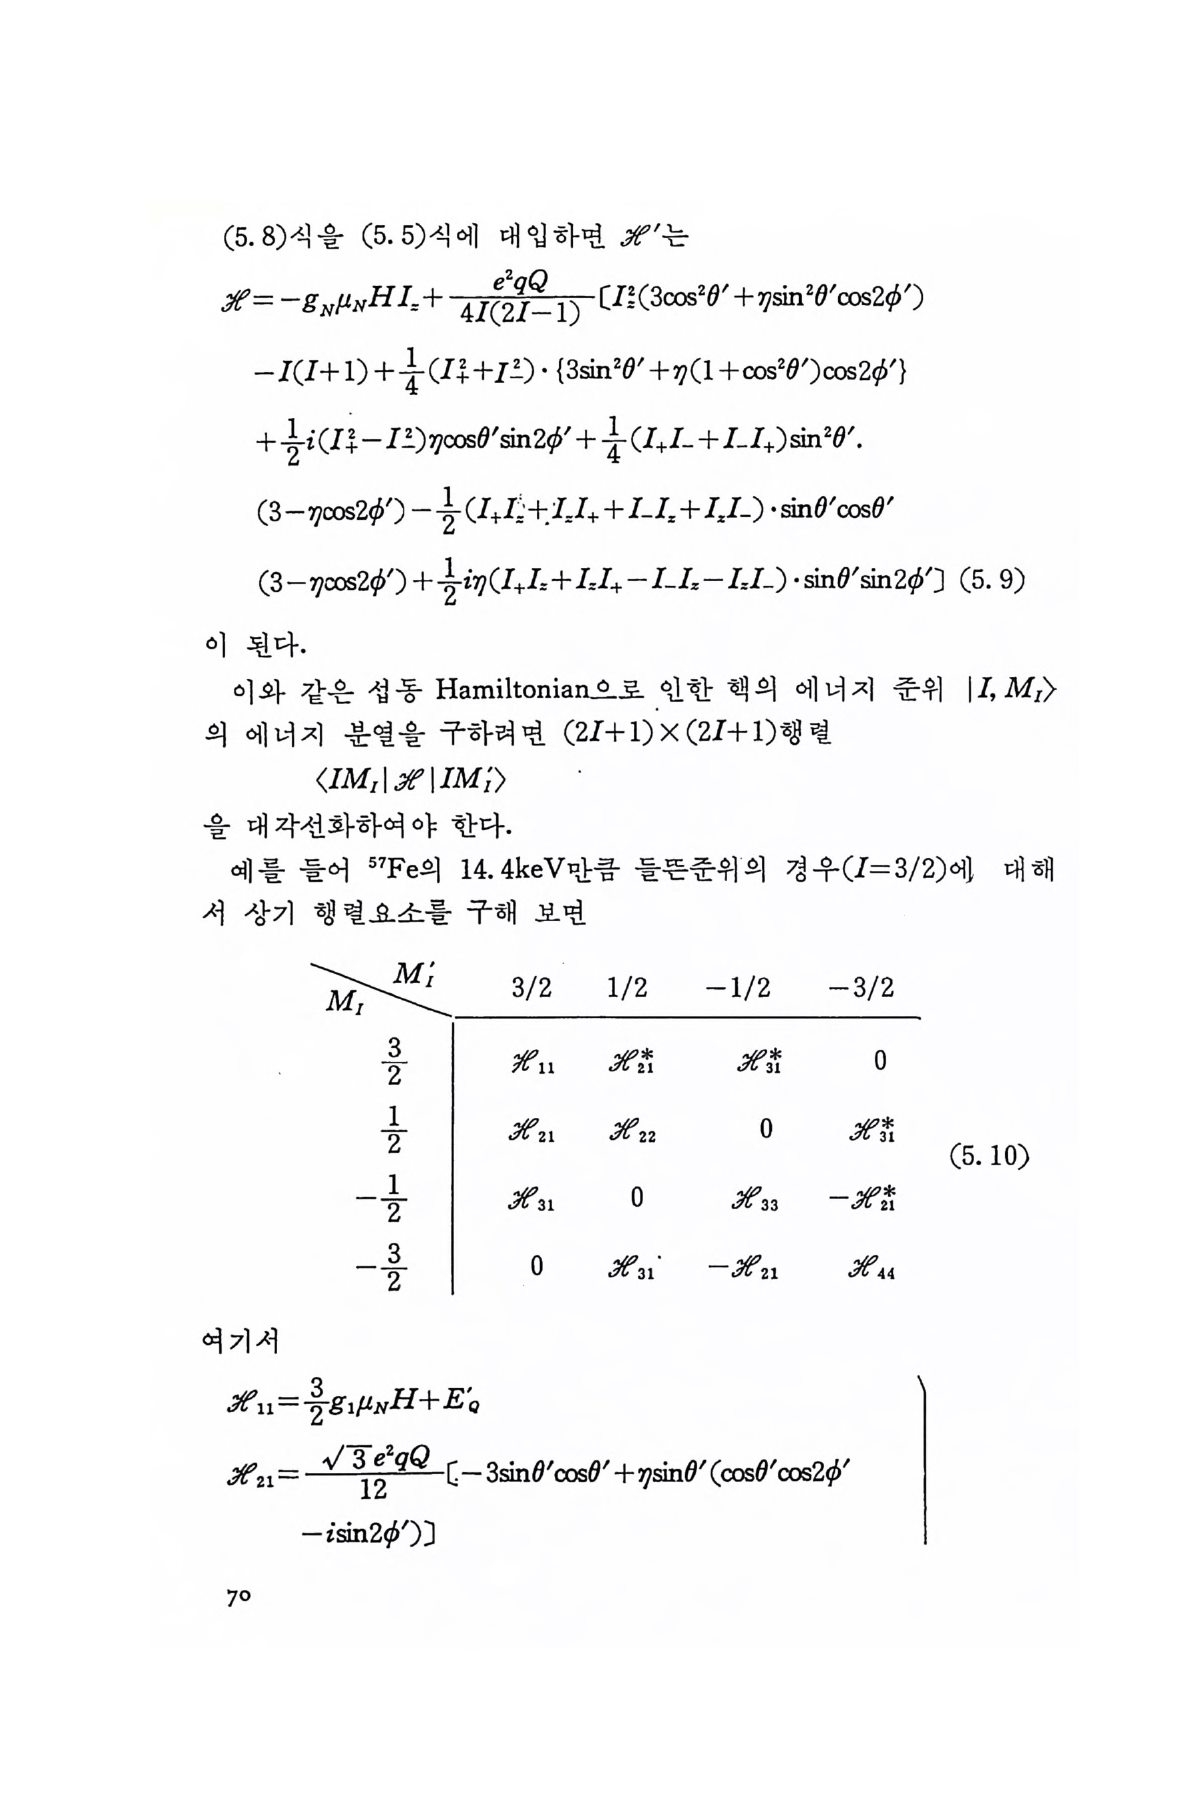 (5. 8)식을 (5. 5)식에 대입하면 ℋ′는
ℋ = −g_N μ_N H I_z + e²qQ / 4I(2I−1) [I_z²(3cos²θ′+ηsin²θ′cos2φ′)
−I(I+1) + 1/4 (I₊²+I₋²)·{3sin²θ′+η(1+cos²θ′)cos2φ′}
+ 1/2 i(I₊²−I₋²)ηcosθ′sin2φ′ + 1/4 (I₊I₋+I₋I₊)sin²θ′.
(3−ηcos2φ′) − 1/2 (I₊I_z+I_zI₊+I₋I_z+I_zI₋)·sinθ′cosθ′
(3−ηcos2φ′) + 1/2 iη(I₊I_z+I_zI₊−I₋I_z−I_zI₋)·sinθ′sin2φ′] (5. 9)
이 된다.
이와 같은 섭동 Hamiltonian으로 인한 핵의 에너지 준위 |I, M_I⟩
의 에너지 분열을 구하려면 (2I+1)×(2I+1)행렬
⟨IM_I|ℋ|IM′_I⟩
을 대각선화하여야 한다.
예를 들어 ⁵⁷Fe의 14. 4keV만큼 들뜬준위의 경우(I=3/2)에 대해
서 상기 행렬요소를 구해 보면
M_I M′_I 3/2 1/2 −1/2 −3/2
3/2 ℋ₁₁ ℋ*₂₁ ℋ*₃₁ 0
1/2 ℋ₂₁ ℋ₂₂ 0 ℋ*₃₁
(5. 10)
−1/2 ℋ₃₁ 0 ℋ₃₃ −ℋ*₂₁
−3/2 0 ℋ₃₁ −ℋ₂₁ ℋ₄₄
여기서
ℋ₁₁ = 3/2 g₁μ_N H+E′_Q
ℋ₂₁ = √3 e²qQ / 12 [−3sinθ′cosθ′+ηsinθ′(cosθ′cos2φ′
−isin2φ′)]
70